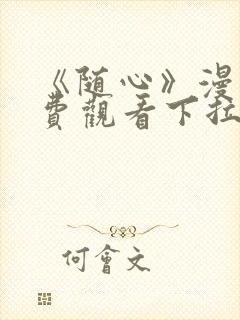 《随心》漫
费觀看下拉
何會文